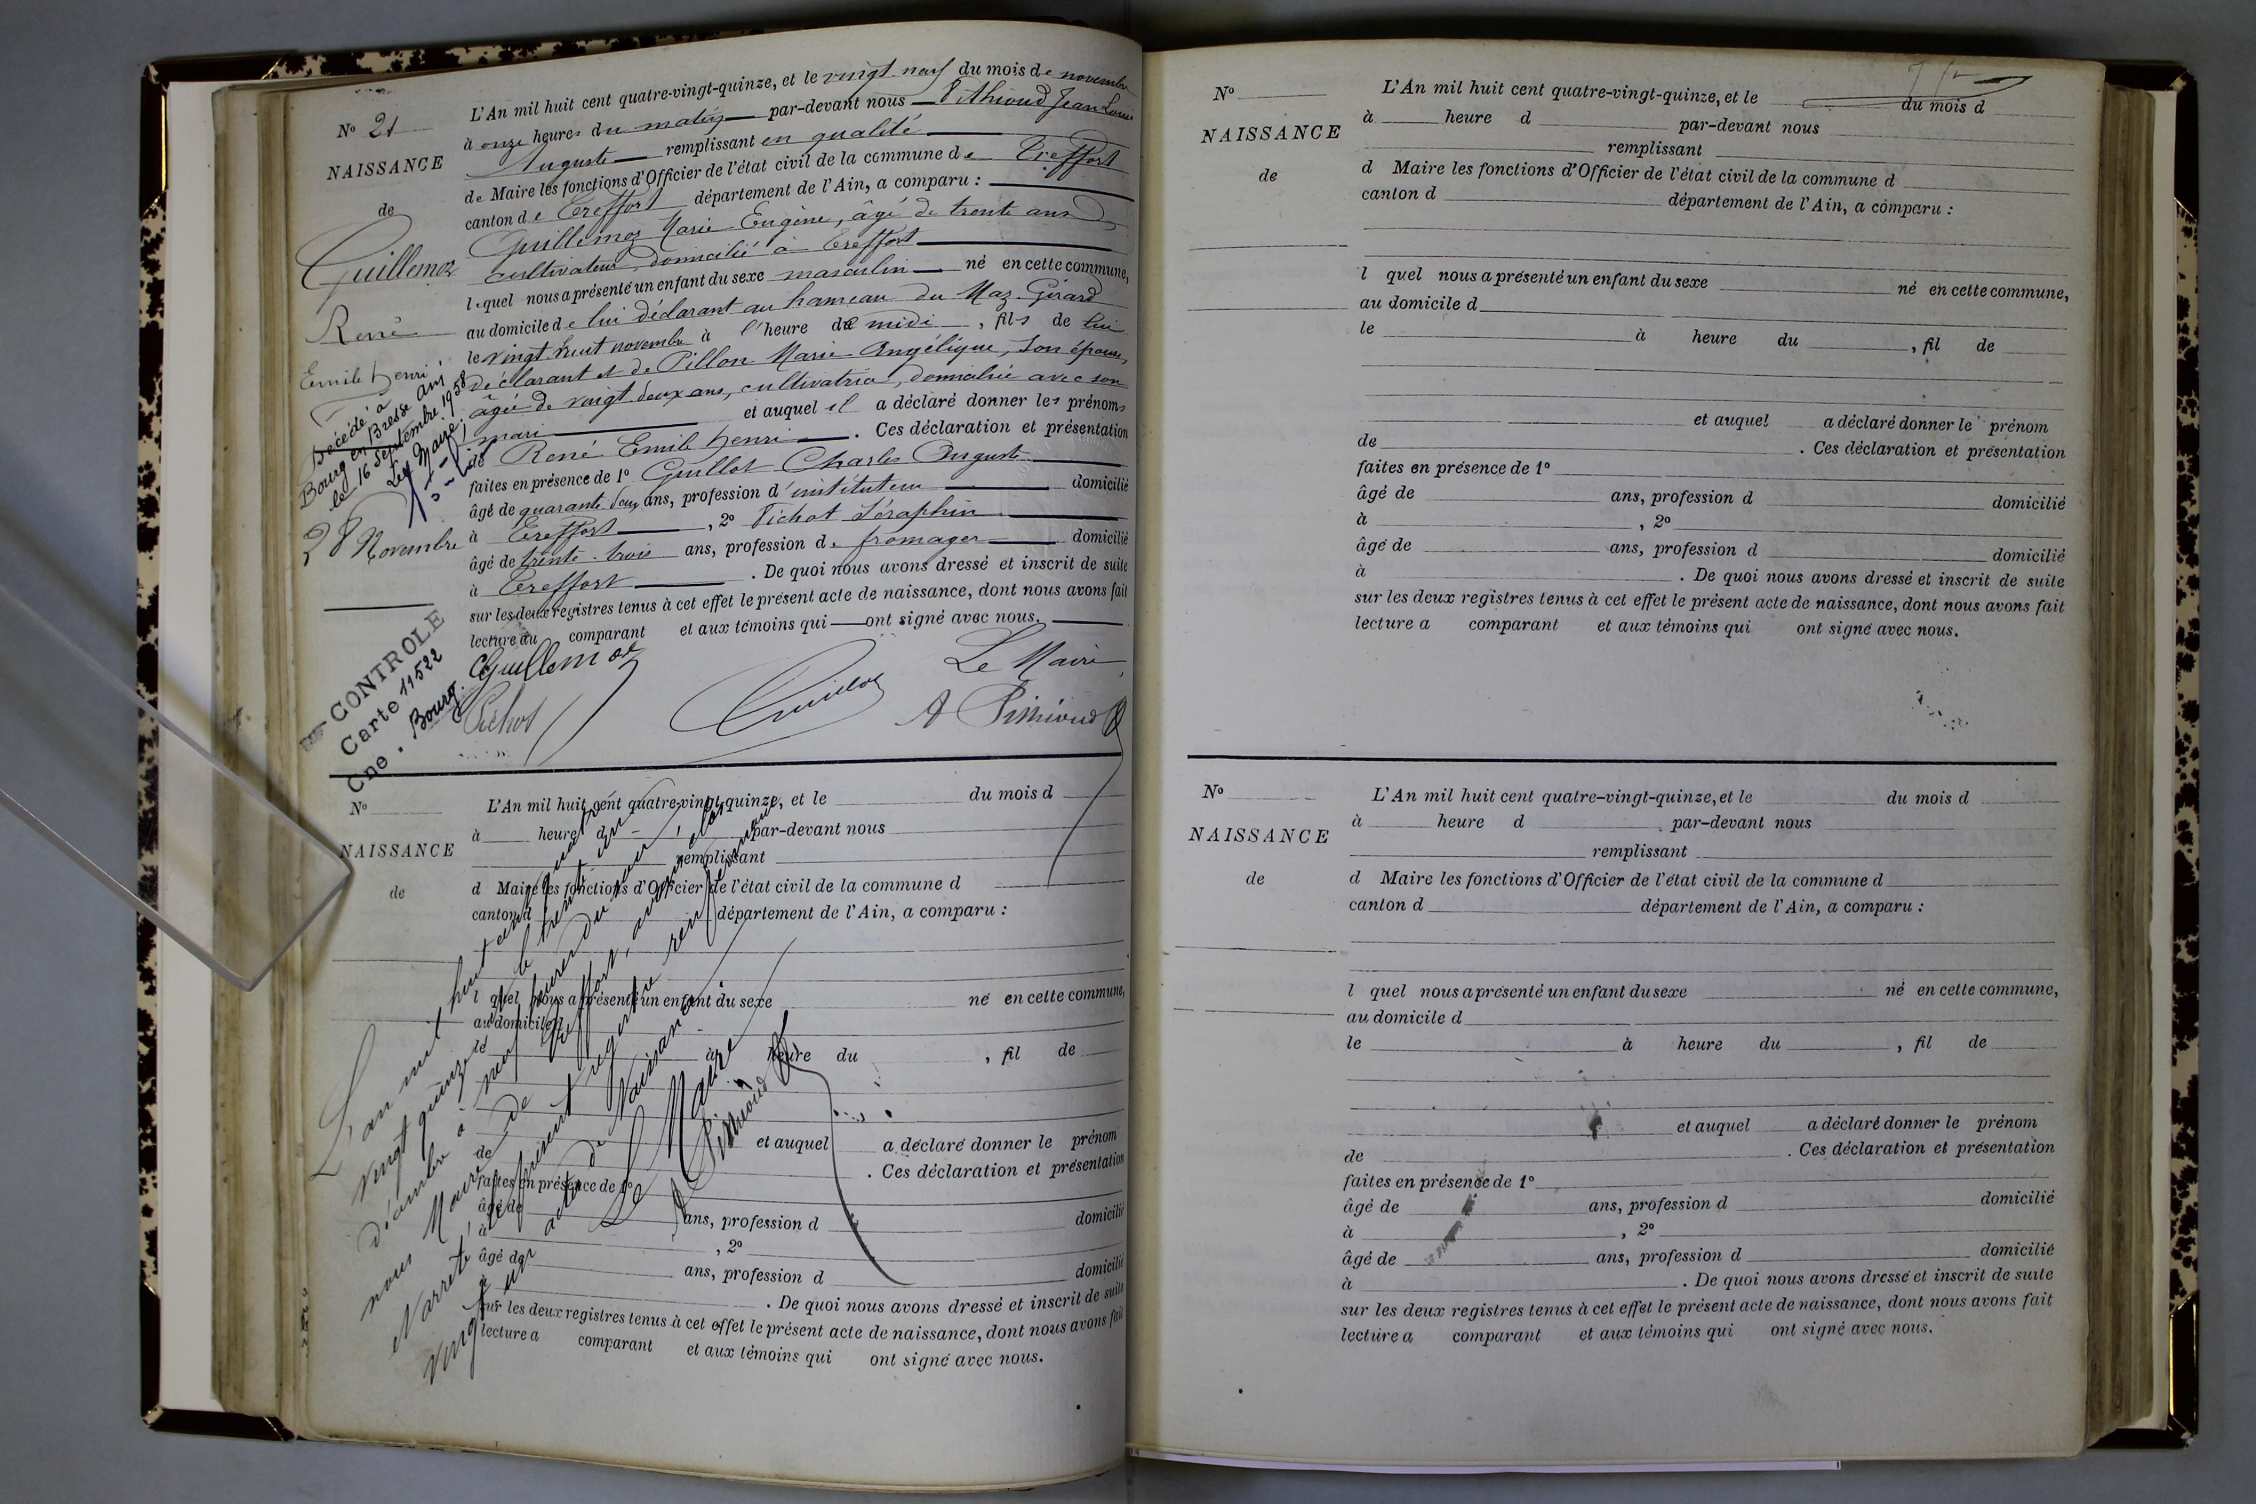 N° 21
NAISSANCE
de
Guillemoz
René
Emile Henri
Décédé à
Bourg en Bresse Ain
le 16 Septembre 1958
Le Maire,
28 Novembre
CONTROLE
Carte 11522
Cne . Bourg.
L'An mil huit cent quatre-vingt-quinze, et le vingt neuf du mois de novembre
à onze heures du matin par-devant nous Pithioud Jean Louis
Auguste remplissant en qualité
de Maire les fonctions d'Officier de l'état civil de la commune de Treffort
canton de Treffort département de l'Ain, a comparu :
Guillemoz Marie Eugène, âgé de trente ans
cultivateur, domicilié à Treffort
lequel nous a présenté un enfant du sexe masculin né en cette commune,
au domicile de lui déclarant au hameau du Maz Gérard
le vingt huit novembre à l'heure de midi , fils de lui
déclarant et de Pillon Marie Angélique, son épouse,
âgée de vingt deux ans, cultivatrice, domiciliée avec son
mari et auquel il a déclaré donner les prénoms
de René Emile Henri . Ces déclaration et présentation
faites en présence de 1° Guillot Charles Auguste
âgé de quarante deux ans, profession d'instituteur domicilié
à Treffort , 2° Pichot Séraphin
âgé de trente-trois ans, profession de fromager domicilié
à Treffort . De quoi nous avons dressé et inscrit de suite
sur les deux registres tenus à cet effet le présent acte de naissance, dont nous avons fait
lecture au comparant et aux témoins qui ont signé avec nous.
Guillemoz
Le Maire
Pichot
Guillot
A Pithioud
N°
NAISSANCE
de
L'An mil huit cent quatre-vingt-quinze, et le du mois d
à heure d par-devant nous
remplissant
d Maire les fonctions d'Officier de l'état civil de la commune d
canton d département de l'Ain, a comparu :
l quel nous a présenté un enfant du sexe né en cette commune,
au domicile d
le à heure du , fil de
et auquel a déclaré donner le prénom
de . Ces déclaration et présentation
faites en présence de 1°
âgé de ans, profession d domicilié
à , 2°
âgé de ans, profession d domicilié
à . De quoi nous avons dressé et inscrit de suite
sur les deux registres tenus à cet effet le présent acte de naissance, dont nous avons fait
lecture a comparant et aux témoins qui ont signé avec nous.
L'an mil huit cent quatre
vingt quinze et le trente un
décembre à neuf heures du soir
nous Maire de Treffort, avons clos
et arrêté le présent registre renfermant
vingt un actes de Naissance
Le Maire
A Pithioud
N°
NAISSANCE
de
L'An mil huit cent quatre-vingt-quinze, et le du mois d
à heure d par-devant nous
remplissant
d Maire les fonctions d'Officier de l'état civil de la commune d
canton d département de l'Ain, a comparu :
l quel nous a présenté un enfant du sexe né en cette commune,
au domicile d
le à heure du , fil de
et auquel a déclaré donner le prénom
de . Ces déclaration et présentation
faites en présence de 1°
âgé de ans, profession d domicilié
à , 2°
âgé de ans, profession d domicilié
à . De quoi nous avons dressé et inscrit de suite
sur les deux registres tenus à cet effet le présent acte de naissance, dont nous avons fait
lecture a comparant et aux témoins qui ont signé avec nous.
N°
NAISSANCE
de
L'An mil huit cent quatre-vingt-quinze, et le du mois d
à heure d par-devant nous
remplissant
d Maire les fonctions d'Officier de l'état civil de la commune d
canton d département de l'Ain, a comparu :
l quel nous a présenté un enfant du sexe né en cette commune,
au domicile d
le à heure du , fil de
et auquel a déclaré donner le prénom
de . Ces déclaration et présentation
faites en présence de 1°
âgé de ans, profession d domicilié
à , 2°
âgé de ans, profession d domicilié
à . De quoi nous avons dressé et inscrit de suite
sur les deux registres tenus à cet effet le présent acte de naissance, dont nous avons fait
lecture a comparant et aux témoins qui ont signé avec nous.